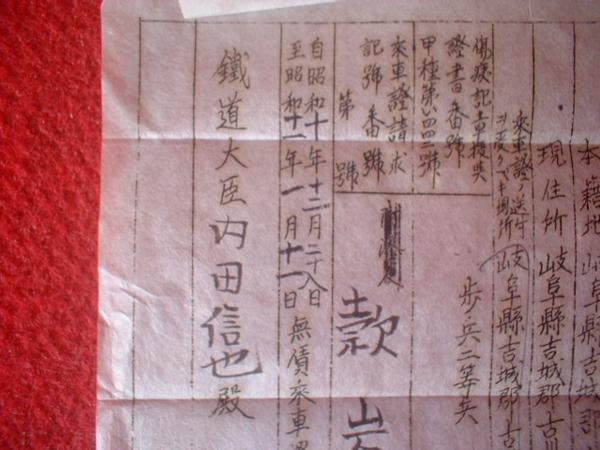 本籍地 岐阜縣吉城郡
現住所 岐阜縣吉城郡古川
乗車證ノ送付
ヲ受クベキ場所 岐阜縣吉城郡古
歩兵二等兵
傷痍記章授與
證書番號
甲種第い四四三號
乗車證請求
記號番號
第 號
款 岩
自昭和十年十二月二十八日
至昭和十一年一月十一日
無賃乗車證
鐵道大臣内田信也殿